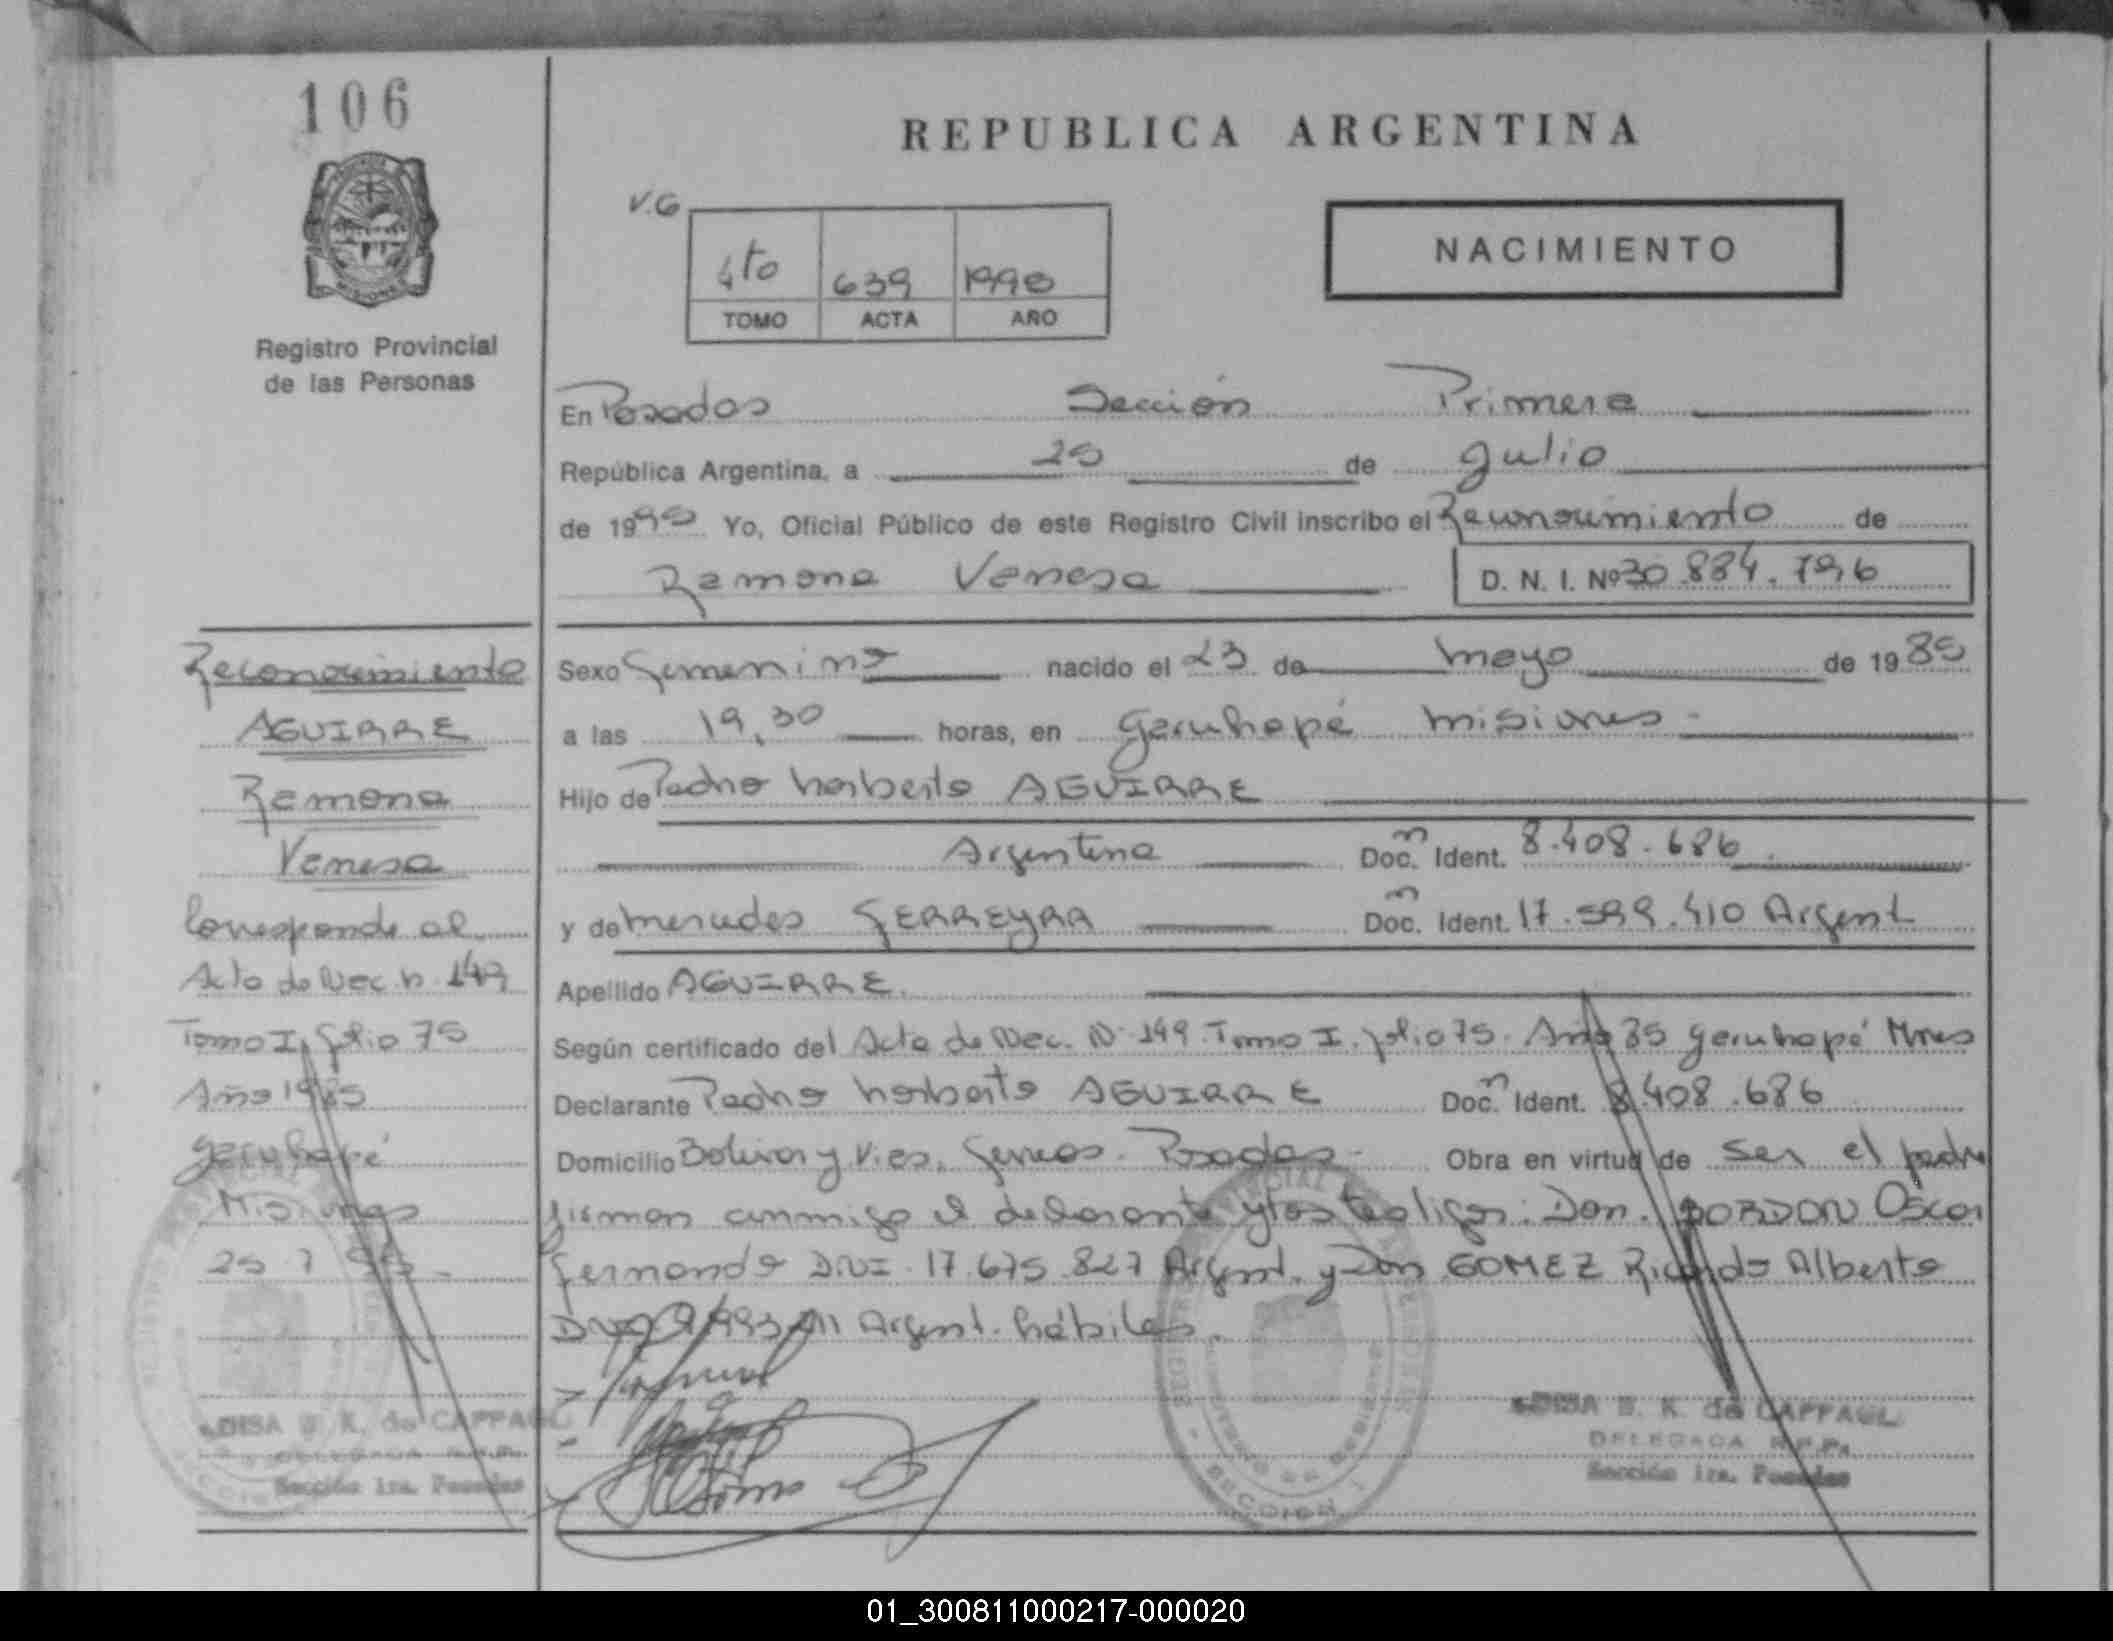 106
REPUBLICA ARGENTINA
V.G
4to 639 1990
TOMO ACTA AÑO
NACIMIENTO
MISIONES
Registro Provincial
de las Personas
En Posadas Sección Primera
República Argentina, a 25 de Julio
de 1990 Yo, Oficial Público de este Registro Civil inscribo el Reconocimiento de
Ramona Vanesa D. N. I. Nº 30.884.796
Sexo Femenino nacido el 23 de mayo de 1985
a las 19,30 horas, en Garuhapé Misiones -
Hijo de Pedro Norberto AGUIRRE
Argentina Doc. Ident. 8.408.686
y de Mercedes FERREYRA Doc. Ident. 17.599.410 Argent
Apellido AGUIRRE.
Según certificado del Acta de Nac. N. 149. Tomo I. folio 75. Año 85 Garuhapé Mnes
Declarante Pedro Norberto AGUIRRE Doc. Ident. 8.408.686
Domicilio Bolivar y V. Posadas - Obra en virtud de ser el padre
firman conmigo el declarante y los testigos: Don. BORDON Oscar
Fernando D.N.I. 17.675.827 Argent. y Don GOMEZ Ricardo Alberto
Argent. hábiles.
Reconocimiento
AGUIRRE
Ramona
Vanesa
Corresponde al
Acta de Nac. N. 149
Tomo I, folio 75
Año 1985
Garuhapé
Misiones
25 7
B. K. de CAPPAGL
DELEGADA R.P.P.
Sección 1ra. Posadas
B. K. de CAPPAGL
DELEGADA R.P.P.
Sección 1ra. Posadas
SECCION 1
01_300811000217-000020